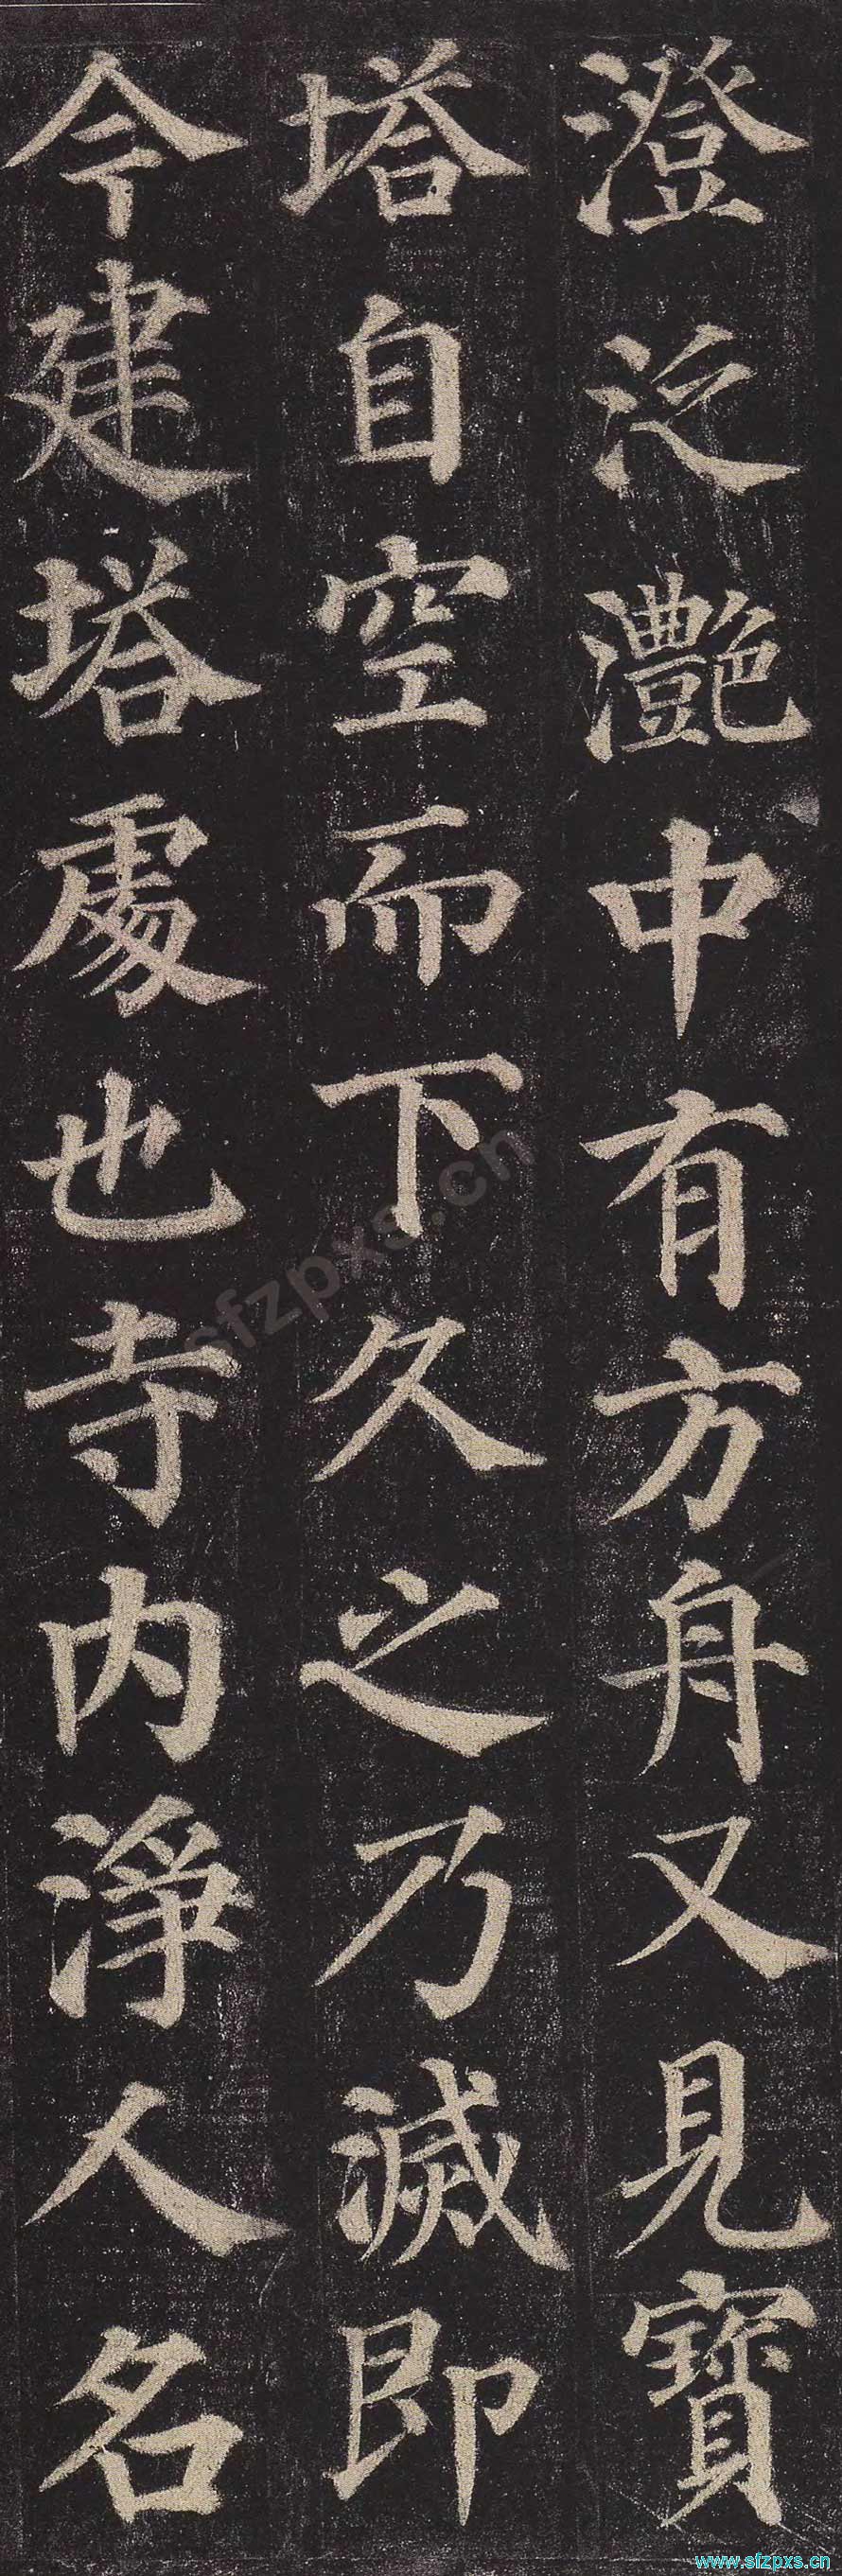 澄泛灧中有方舟又見寶
塔自空而下久之乃滅即
今建塔處也寺内淨人名
sfzpxs.cn
www.sfzpxs.cn